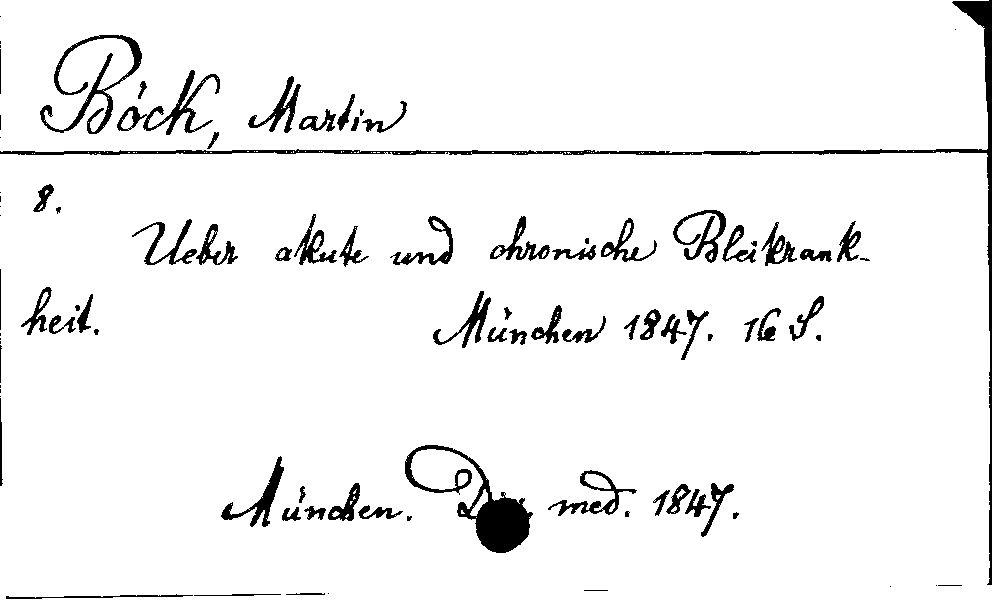 Böck, Martin
8.
Ueber akute und chronische Bleikrank-
heit. München 1847. 16 S.
München. med. 1847.